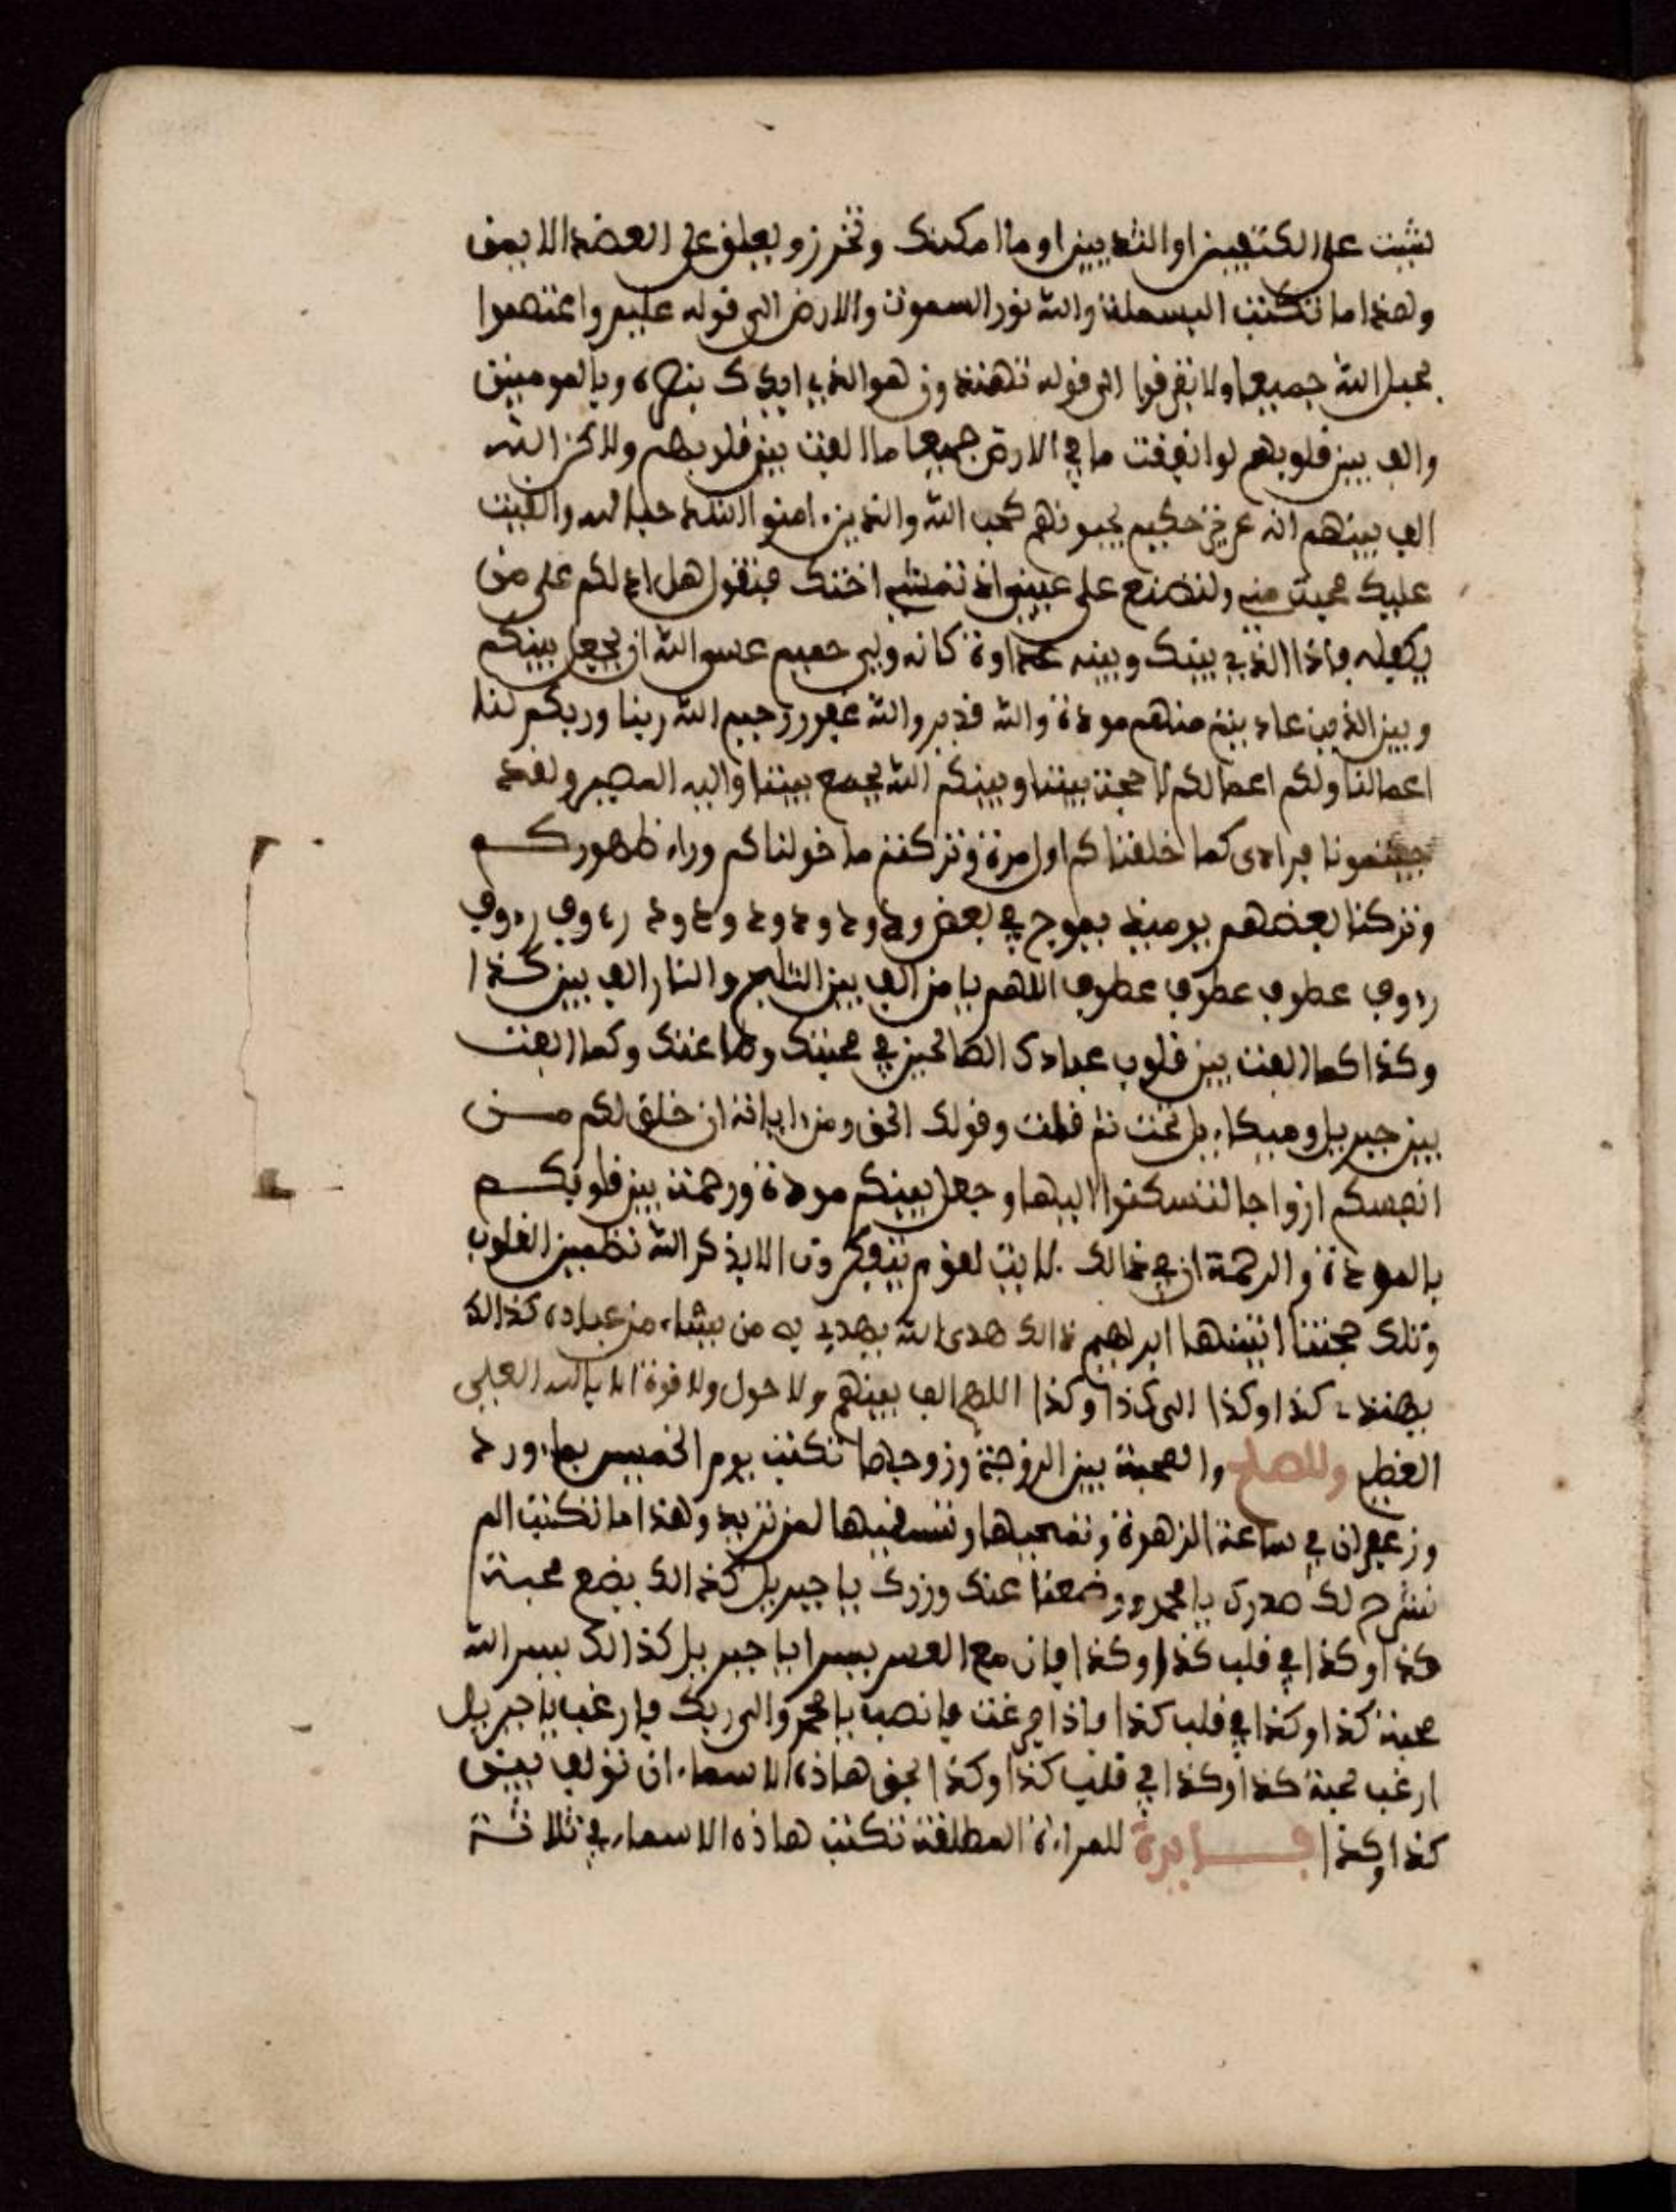 شئت على الكتفين او الثديين او ما امكنك وتخرز ويعلق على العضد الايمن
وهذا ما تكتب البسملة والله نور السموت والارض الى قوله عليم واعتصموا
بحبل الله جميعا ولا تفرقوا الى قوله تهتدون هو الذي ايدك بنصره وبالمومنين
والف بين قلوبهم لو انفقت ما في الارض جميعا ما الفت بين قلوبهم ولاكن الله
الف بينهم انه عزيز حكيم يحبونهم كحب الله والذين ءامنوا اشد حبا لله والقيت
عليك محبة مني ولتصنع على عيني اذ تمشي اختك فتقول هل ادلكم على من
يكفله فاذا الذي بينك وبينه عداوة كانه ولي حميم عسى الله ان يجعل بينكم
وبين الذين عاديتم منهم مودة والله قدير والله غفور رحيم الله ربنا وربكم لنا
اعمالنا ولكم اعمالكم لا حجة بيننا وبينكم الله يجمع بيننا واليه المصير ولقد
جيتمونا فرادى كما خلقناكم اول مرة وتركتم ما خولناكم وراء ظهوركم
وتركنا بعضهم يوميذ يموج في بعض ود ود ود ود ود ود رءوف رءوف
رءوف عطوف عطوف عطوف اللهم يا من الف بين الثلج والنار الف بين كذا
وكذا كما الفت بين قلوب عبادك الصالحين في محبتك وطاعتك وكما الفت
بين جبريل وميكاءيل تحت ثم قلت وقولك الحق ومن اياته ان خلق لكم من
انفسكم ازواجا لتسكنوا اليها وجعل بينكم مودة ورحمة بين قلوبكم
بالمودة والرحمة ان في ذالك لايت لقوم يتفكرون الا بذكر الله تطمين القلوب
وتلك حجتنا اتينها ابرهيم ذالك هدى الله يهدي به من يشاء من عباده كذالك
يهتد كذا وكذا الى كذا وكذا اللهم الف بينهم ولا حول ولا قوة الا بالله العلي
العظيم وللصلح والمحبة بين الزوجة وزوجها تكتب يوم الخميس بماء ورد
وزعفران في ساعة الزهرة وتمحيها وتسقيها لمن تريد وهذا ما تكتب الم
نشرح لك صدرك يا محمد ووضعنا عنك وزرك يا جبريل كذالك يضع محبة
كذا وكذا في قلب كذا وكذا فان مع العسر يسرا يا جبريل كذالك ييسر الله
محبة كذا وكذا في قلب كذا فاذا فرغت فانصب يا محمد والى ربك فارغب يا جبريل
ارغب محبة كذا وكذا في قلب كذا وكذا بحق هاذه الاسماء ان تولف بين
كذا وكذا فايدة للمراة المطلقة تكتب هاذه الاسماء في ثلاثة